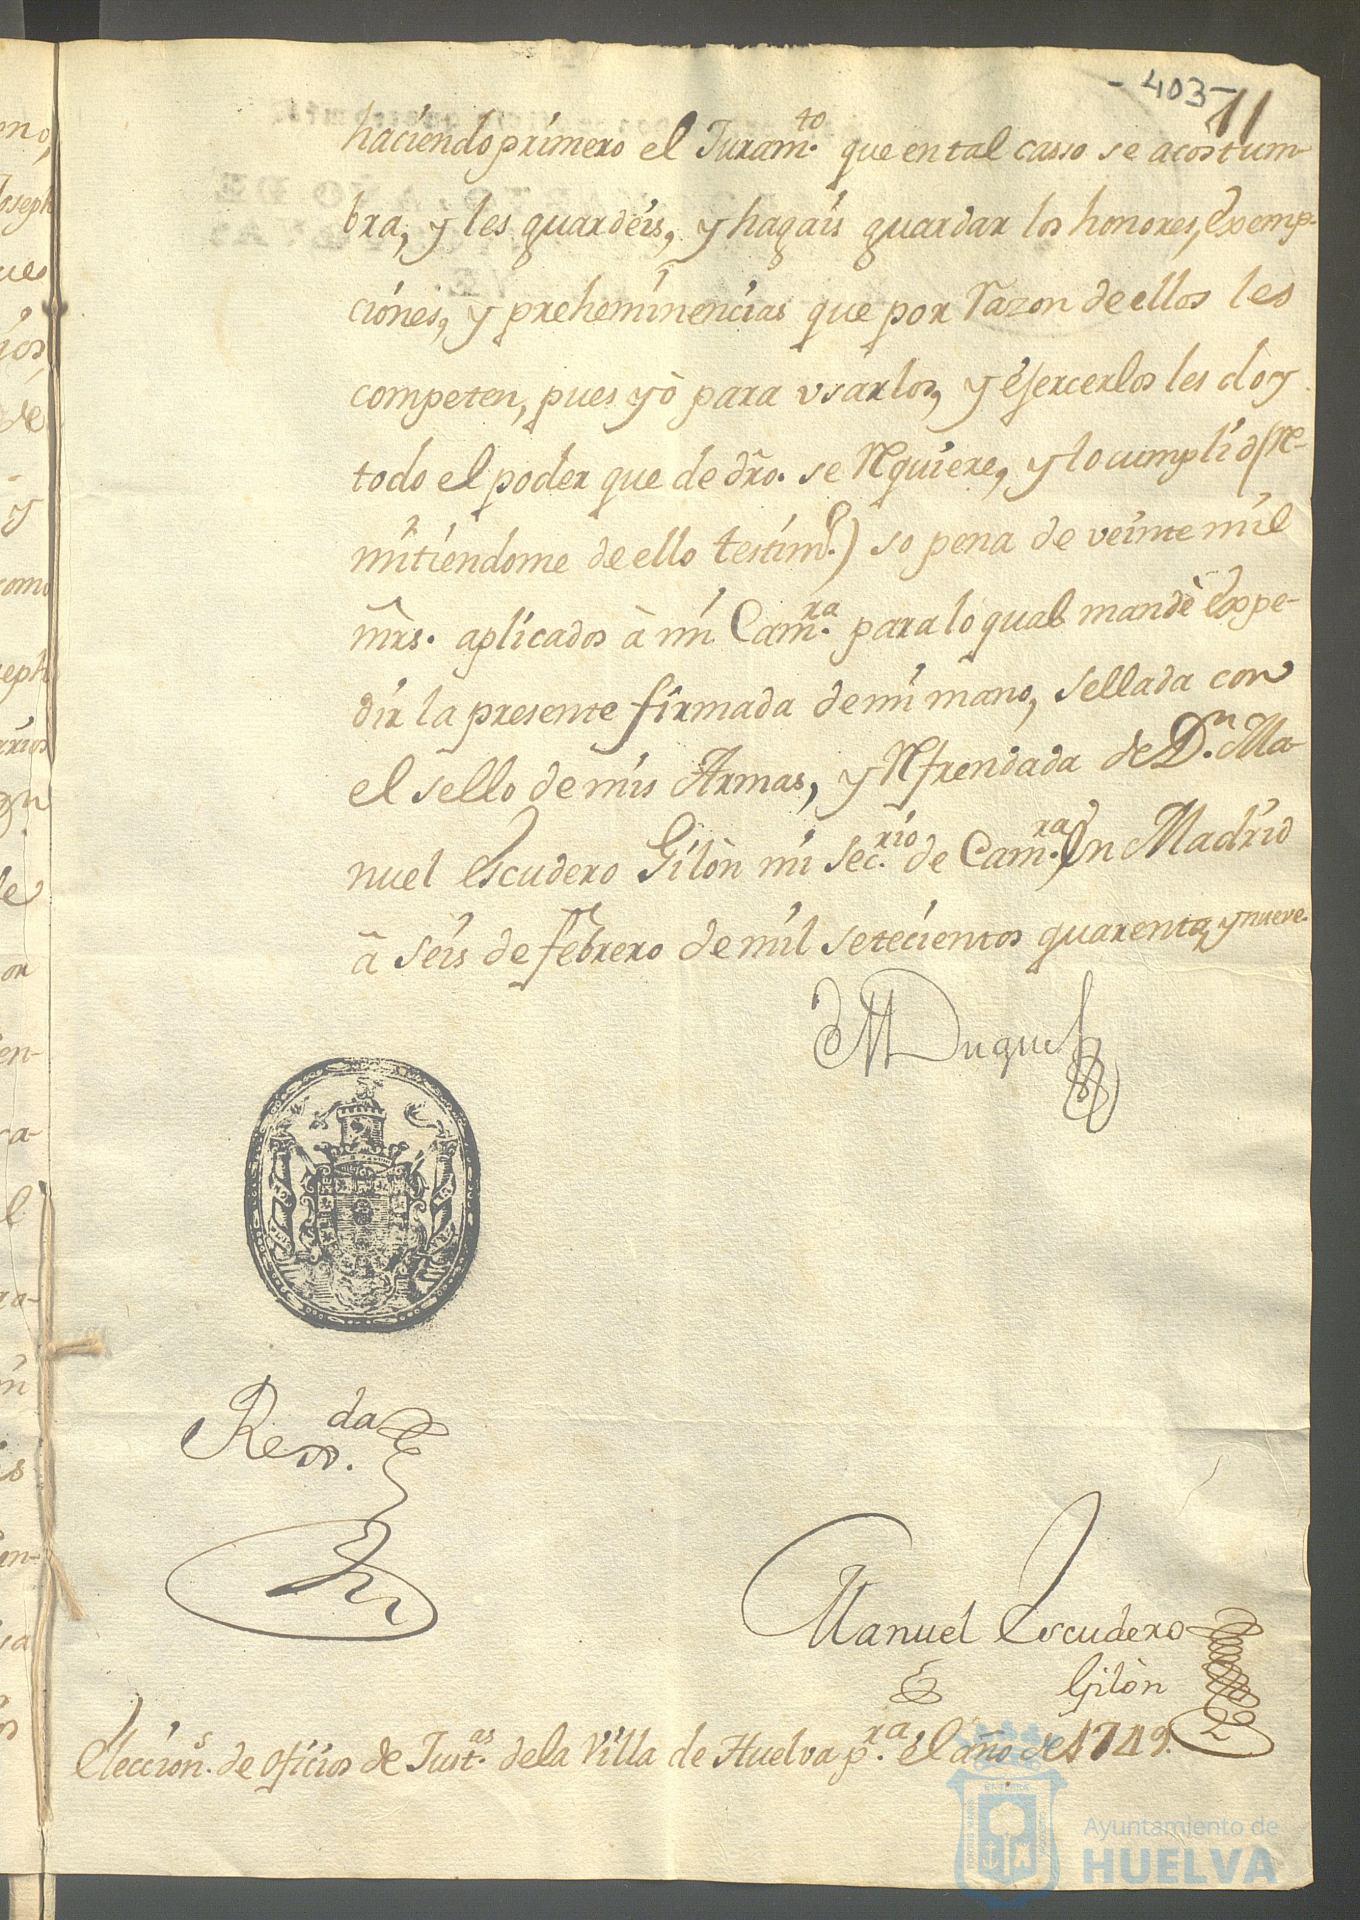 - 403 -
11
haciendo primero el Juram.to que en tal casso se acostum-
bra, y les guardéis, y hagais guardar los honores, exemp-
ciones, y preheminencias que por razon de ellos les
competen, pues yò para usarlos, y éjercerlos les doy
todo el poder que de dro. se requiere, y lo cumplid (re-
mitiendome de ello testim.o) so pena de veinte mil
mrs. aplicados à mi Cam.ra para lo qual mandè expe-
dir la presente firmada de mi mano, sellada con
el sello de mis Armas, y refrendada de D.n Ma-
nuel Escudero Gilòn mi Sec.rio de Cam.ra En Madrid
à seis de febrero de mil setecientos quarenta, y nueve.
El Duque
Rexx.da
Manuel Escudero
Gilòn
Eleccion.s de oficios de Just.as de la Villa de Huelva p.ra él año de 1749.
Ayuntamiento de
HUELVA